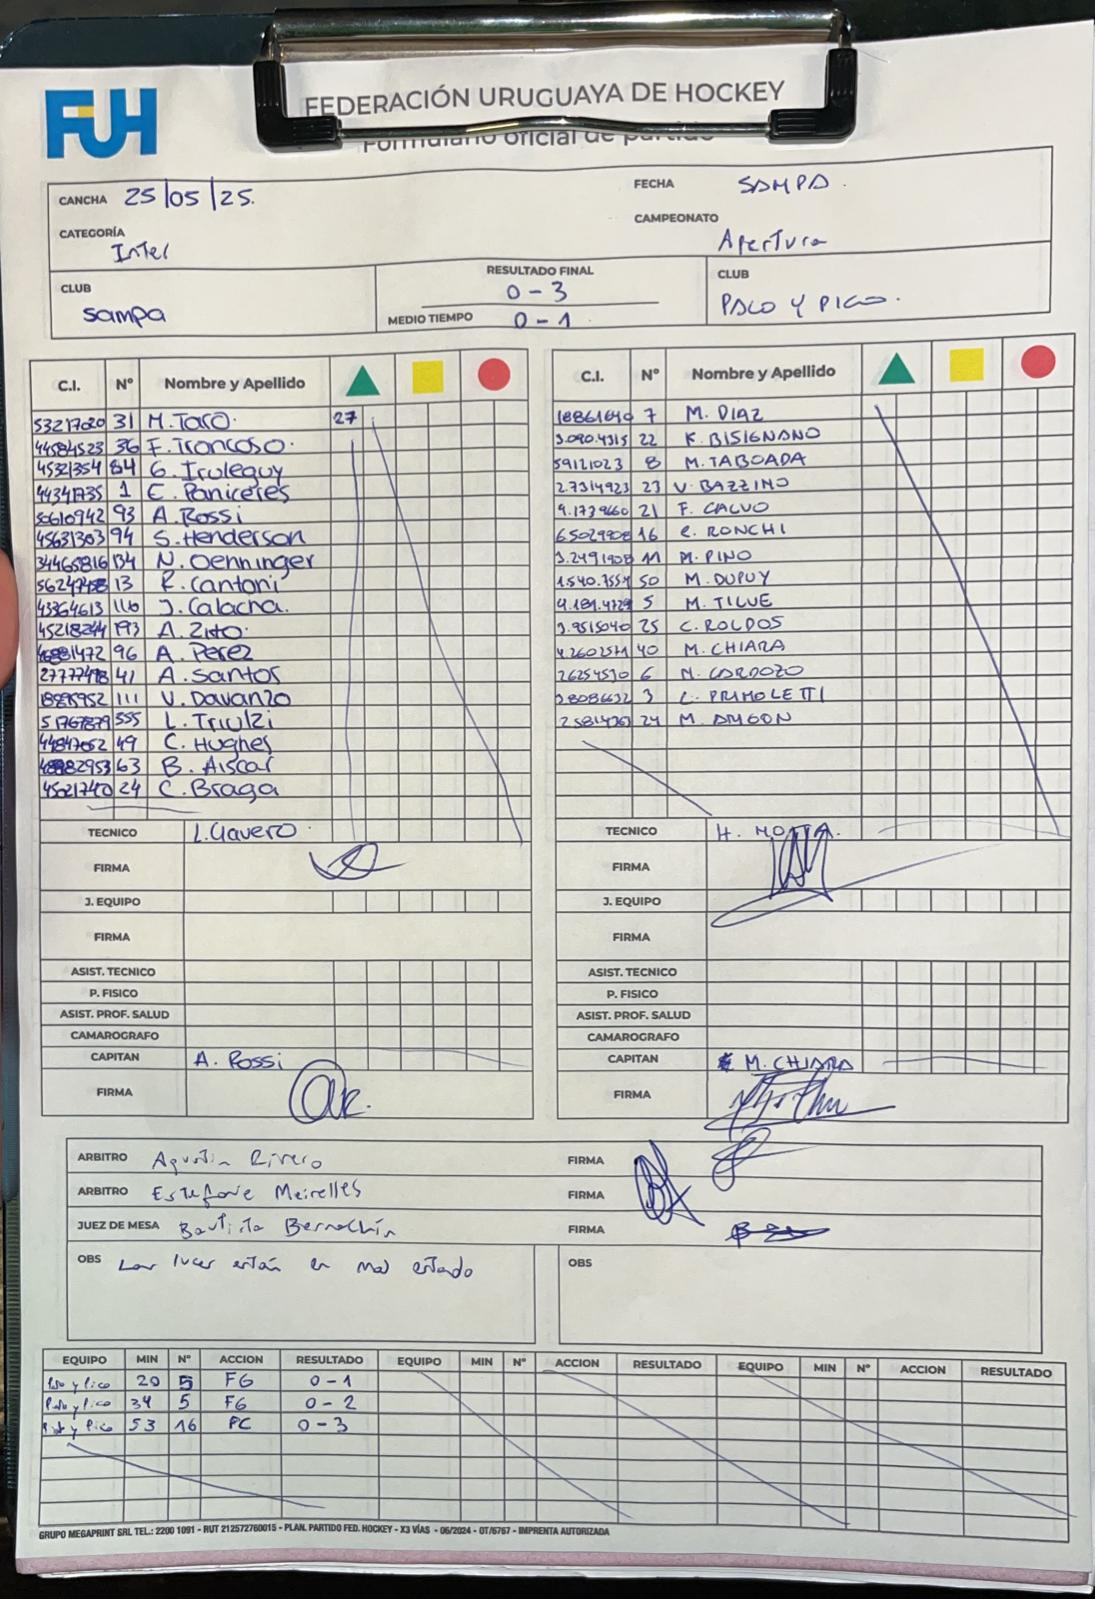 FUH
FEDERACIÓN URUGUAYA DE HOCKEY
Formulario oficial de partido
CANCHA 25/05/25. FECHA SAMPA.
CATEGORÍA Inter CAMPEONATO Apertura
CLUB sampa RESULTADO FINAL 0-3 CLUB PALO Y PICO.
MEDIO TIEMPO 0-1
C.I. Nº Nombre y Apellido C.I. Nº Nombre y Apellido
53217020 31 M. Taro. 27 7 M. DIAZ
44584523 36 F. Troncoso. 3.090.4315 22 K. BISIGNANO
45321354 84 G. Iruleguy 59121023 8 M. TABOADA
44341735 1 E. Paniceres 2.7314923 23 V. BAZZINO
50610942 93 A. Rossi 21 F. CALVO
45631303 94 S. Henderson 16 C. RONCHI
34465816 134 N. Oenninger 3.2491908 11 M. PINO
13 R. Cantoni 50 M. DUPUY
43364613 116 J. Calacna. 5 M. TILVE
193 A. Zito. 3.9515040 25 C. ROLDOS
96 A. Perez 40 M. CHIARA
41 A. Santos 26254570 6 M. CARDOZO
111 V. Davanzo 3 C. PRIMOLETTI
51767879 555 L. Triulzi 24 M.
44847052 49 C. Hughes
63 B. Aiscar
45021740 24 C. Braga
TECNICO L. Gavero. TECNICO H. MOTTA.
FIRMA FIRMA
J. EQUIPO J. EQUIPO
FIRMA FIRMA
ASIST. TECNICO ASIST. TECNICO
P. FISICO P. FISICO
ASIST. PROF. SALUD ASIST. PROF. SALUD
CAMAROGRAFO CAMAROGRAFO
CAPITAN A. Rossi CAPITAN M. CHIARA
FIRMA FIRMA
ARBITRO Agustin Rivero FIRMA
ARBITRO Estefanie Meirelles FIRMA
JUEZ DE MESA Bautista FIRMA
OBS Las luces están en mal estado OBS
EQUIPO MIN Nº ACCION RESULTADO EQUIPO MIN Nº ACCION RESULTADO EQUIPO MIN Nº ACCION RESULTADO
Palo y Pico 20 5 FG 0-1
Palo y Pico 34 5 FG 0-2
Palo y Pico 53 16 PC 0-3
GRUPO MEGAPRINT SRL TEL.: 2200 1091 - RUT 212572760015 - PLAN. PARTIDO FED. HOCKEY - X3 VÍAS - 06/2024 - OT/6767 - IMPRENTA AUTORIZADA